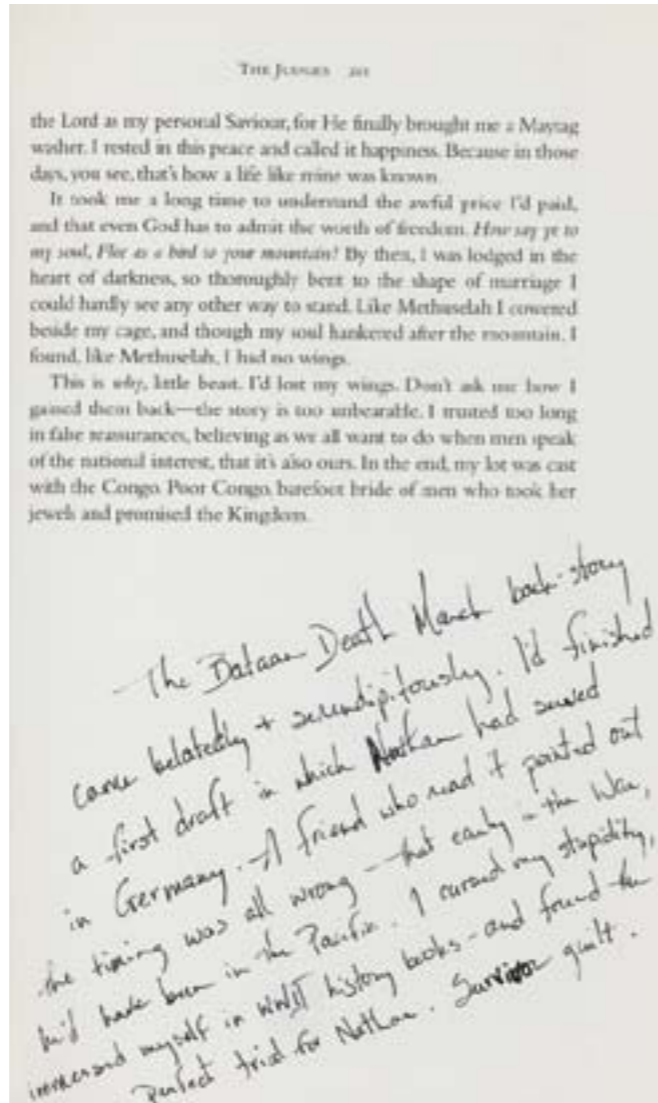 THE JUDGES 201
the Lord as my personal Saviour, for He finally brought me a Maytag
washer. I rested in this peace and called it happiness. Because in those
days, you see, that's how a life like mine was known.
It took me a long time to understand the awful price I'd paid,
and that even God has to admit the worth of freedom. How say ye to
my soul, Flee as a bird to your mountain? By then, I was lodged in the
heart of darkness, so thoroughly bent to the shape of marriage I
could hardly see any other way to stand. Like Methuselah I cowered
beside my cage, and though my soul hankered after the mountain, I
found, like Methuselah, I had no wings.
This is why, little beast. I'd lost my wings. Don't ask me how I
gained them back—the story is too unbearable. I trusted too long
in false reassurances, believing as we all want to do when men speak
of the national interest, that it's also ours. In the end, my lot was cast
with the Congo. Poor Congo, barefoot bride of men who took her
jewels and promised the Kingdom.
The Bataan Death March back-story
came belatedly + serendipitously. I'd finished
a first draft in which Nathan had served
in Germany. A friend who read it pointed out
the timing was all wrong - that early in the War,
he'd have been in the Pacific. I cursed my stupidity,
immersed myself in WWII history books - and found the
perfect trial for Nathan. Survivor guilt.